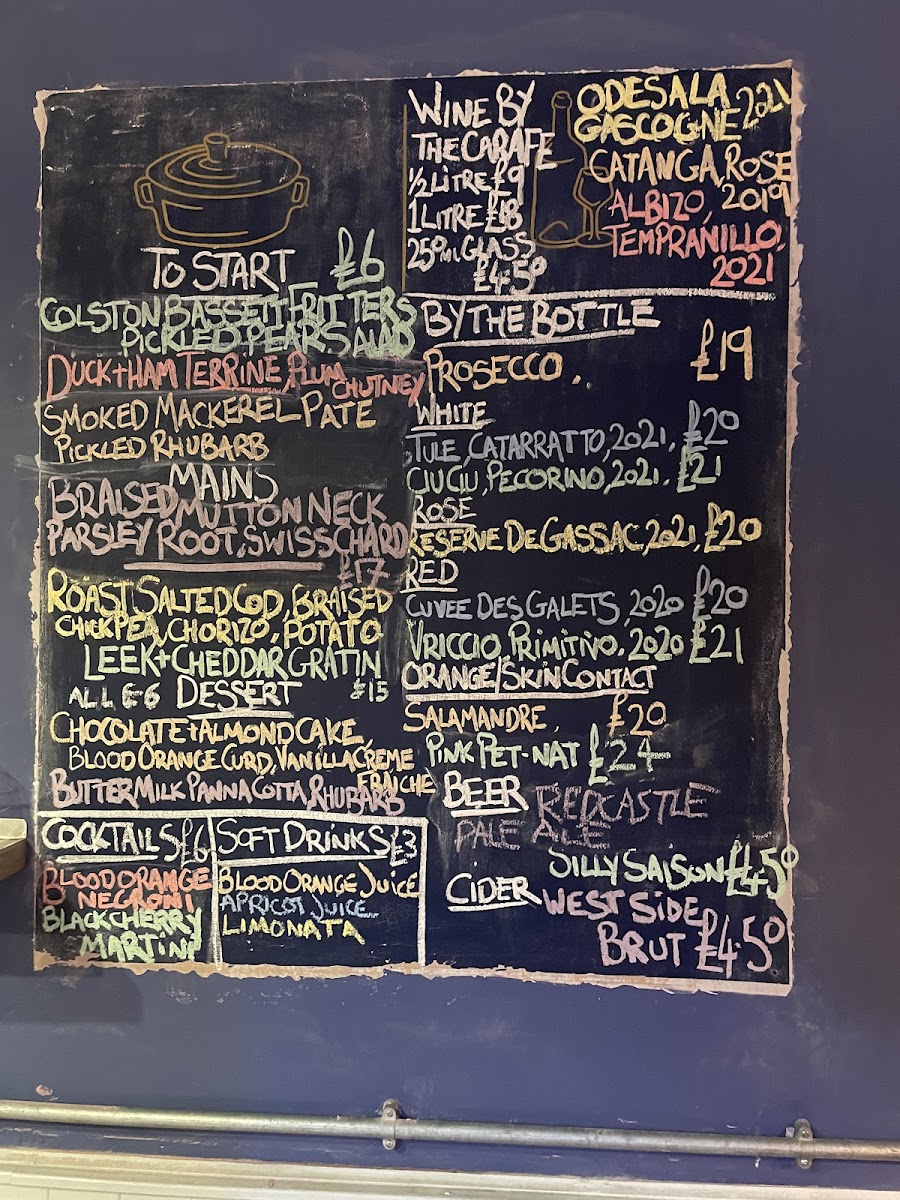 TO START £6
COLSTON BASSETT FRITTERS
PICKLED PEAR SALAD
DUCK + HAM TERRINE, PLUM CHUTNEY
SMOKED MACKEREL PATE
PICKLED RHUBARB
MAINS
BRAISED MUTTON NECK
PARSLEY ROOT, SWISS CHARD
£17
ROAST SALTED COD, BRAISED
CHICKPEA, CHORIZO, POTATO
LEEK + CHEDDAR GRATIN
£15
ALL £6 DESSERT
CHOCOLATE + ALMOND CAKE,
BLOOD ORANGE CURD, VANILLA CREME
FRAICHE
BUTTERMILK PANNACOTTA, RHUBARB
COCKTAILS £6
BLOOD ORANGE
NEGRONI
BLACK CHERRY
MARTINI
SOFT DRINKS £3
BLOOD ORANGE JUICE
APRICOT JUICE
LIMONATA
WINE BY
THE CARAFE
1/2 LITRE £9
1 LITRE £18
250ml GLASS
£4.50
ODESALA
GASCOGNE 2021
CATANGA, ROSE
2019
ALBIZO,
TEMPRANILLO,
2021
BY THE BOTTLE
PROSECCO . £19
WHITE
TULE, CATARRATTO, 2021, £20
CIU CIU, PECORINO, 2021. £21
ROSE
RESERVE DE GASSAC, 2021, £20
RED
CUVEE DES GALETS, 2020 £20
VRICCIO, PRIMITIVO, 2020 £21
ORANGE/SKIN CONTACT
SALAMANDRE, £20
PINK PET-NAT £24
BEER REDCASTLE
PALE ALE
SILLY SAISON £4.50
CIDER WEST SIDE
BRUT £4.50